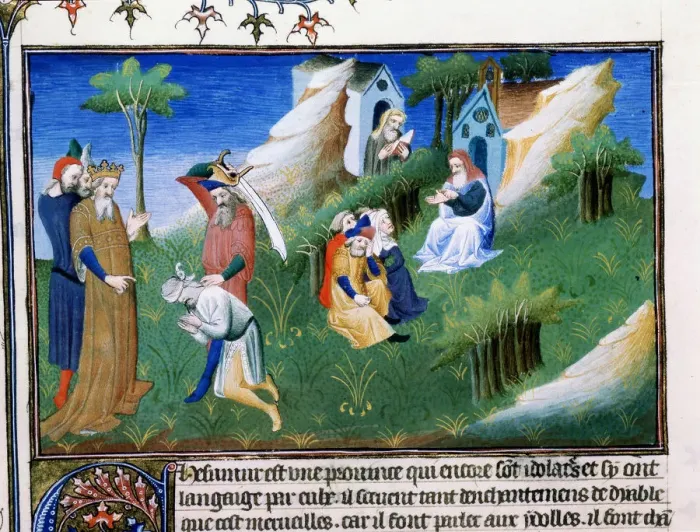 Chesimur est vne prouince qui encore sōt idolatr̃s et sy ont
langaige par eulx. il sceuent tant denchantemens de dyable
que cest merueilles. car il font parler aux ydolles. il font cha